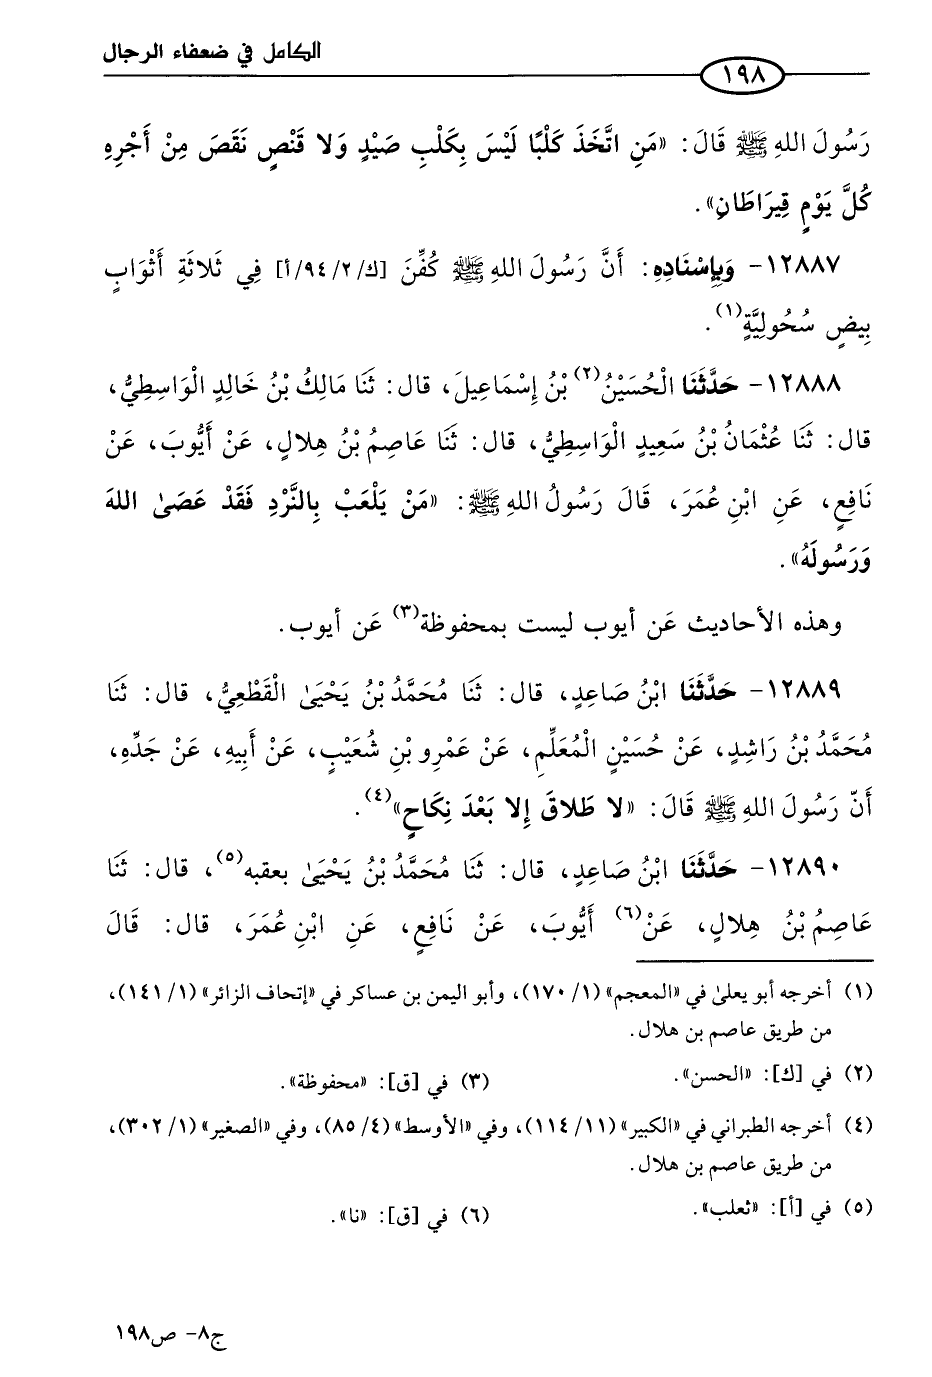 الكامل في ضعفاء الرجال
١٩٨
رَسُولَ اللهِ ﷺ قَالَ: «مَنِ اتَّخَذَ كَلْبًا لَيْسَ بِكَلْبِ صَيْدٍ وَلا قَنْصٍ نَقَصَ مِنْ أَجْرِهِ
كُلَّ يَوْمٍ قِيرَاطَانِ».
١٢٨٨٧- وَبِإِسْنَادِهِ: أَنَّ رَسُولَ اللهِ ﷺ كُفِّنَ [ك/٢/٩٤/أ] فِي ثَلاثَةِ أَثْوَابٍ
بِيضٍ سُحُولِيَّةٍ(١).
١٢٨٨٨- حَدَّثَنَا الْحُسَيْنُ(٢) بْنُ إِسْمَاعِيلَ، قال: ثَنَا مَالِكُ بْنُ خَالِدٍ الْوَاسِطِيُّ،
قال: ثَنَا عُثْمَانُ بْنُ سَعِيدٍ الْوَاسِطِيُّ، قال: ثَنَا عَاصِمُ بْنُ هِلالٍ، عَنْ أَيُّوبَ، عَنْ
نَافِعٍ، عَنِ ابْنِ عُمَرَ، قَالَ رَسُولُ اللهِ ﷺ: «مَنْ يَلْعَبْ بِالنَّرْدِ فَقَدْ عَصَىٰ اللهَ
وَرَسُولَهُ».
وهذه الأحاديث عَن أيوب ليست بمحفوظة(٣) عَن أيوب.
١٢٨٨٩- حَدَّثَنَا ابْنُ صَاعِدٍ، قال: ثَنَا مُحَمَّدُ بْنُ يَحْيَىٰ الْقَطْعِيُّ، قال: ثَنَا
مُحَمَّدُ بْنُ رَاشِدٍ، عَنْ حُسَيْنٍ الْمُعَلِّمِ، عَنْ عَمْرِو بْنِ شُعَيْبٍ، عَنْ أَبِيهِ، عَنْ جَدِّهِ،
أَنّ رَسُولَ اللهِ ﷺ قَالَ: «لا طَلاقَ إِلا بَعْدَ نِكَاحٍ»(٤).
١٢٨٩٠- حَدَّثَنَا ابْنُ صَاعِدٍ، قال: ثَنَا مُحَمَّدُ بْنُ يَحْيَىٰ بعقبه(٥)، قال: ثَنَا
عَاصِمُ بْنُ هِلالٍ، عَنْ(٦) أَيُّوبَ، عَنْ نَافِعٍ، عَنِ ابْنِ عُمَرَ، قال: قَالَ
(١) أخرجه أبو يعلىٰ في «المعجم» (١/ ١٧٠)، وأبو اليمن بن عساكر في «إتحاف الزائر» (١/ ١٤١)،
من طريق عاصم بن هلال.
(٢) في [ك]: «الحسن». (٣) في [ق]: «محفوظة».
(٤) أخرجه الطبراني في «الكبير» (١١/ ١١٤)، وفي «الأوسط» (٤/ ٨٥)، وفي «الصغير» (١/ ٣٠٢)،
من طريق عاصم بن هلال.
(٥) في [أ]: «ثعلب». (٦) في [ق]: «نا».
ج٨- ص١٩٨